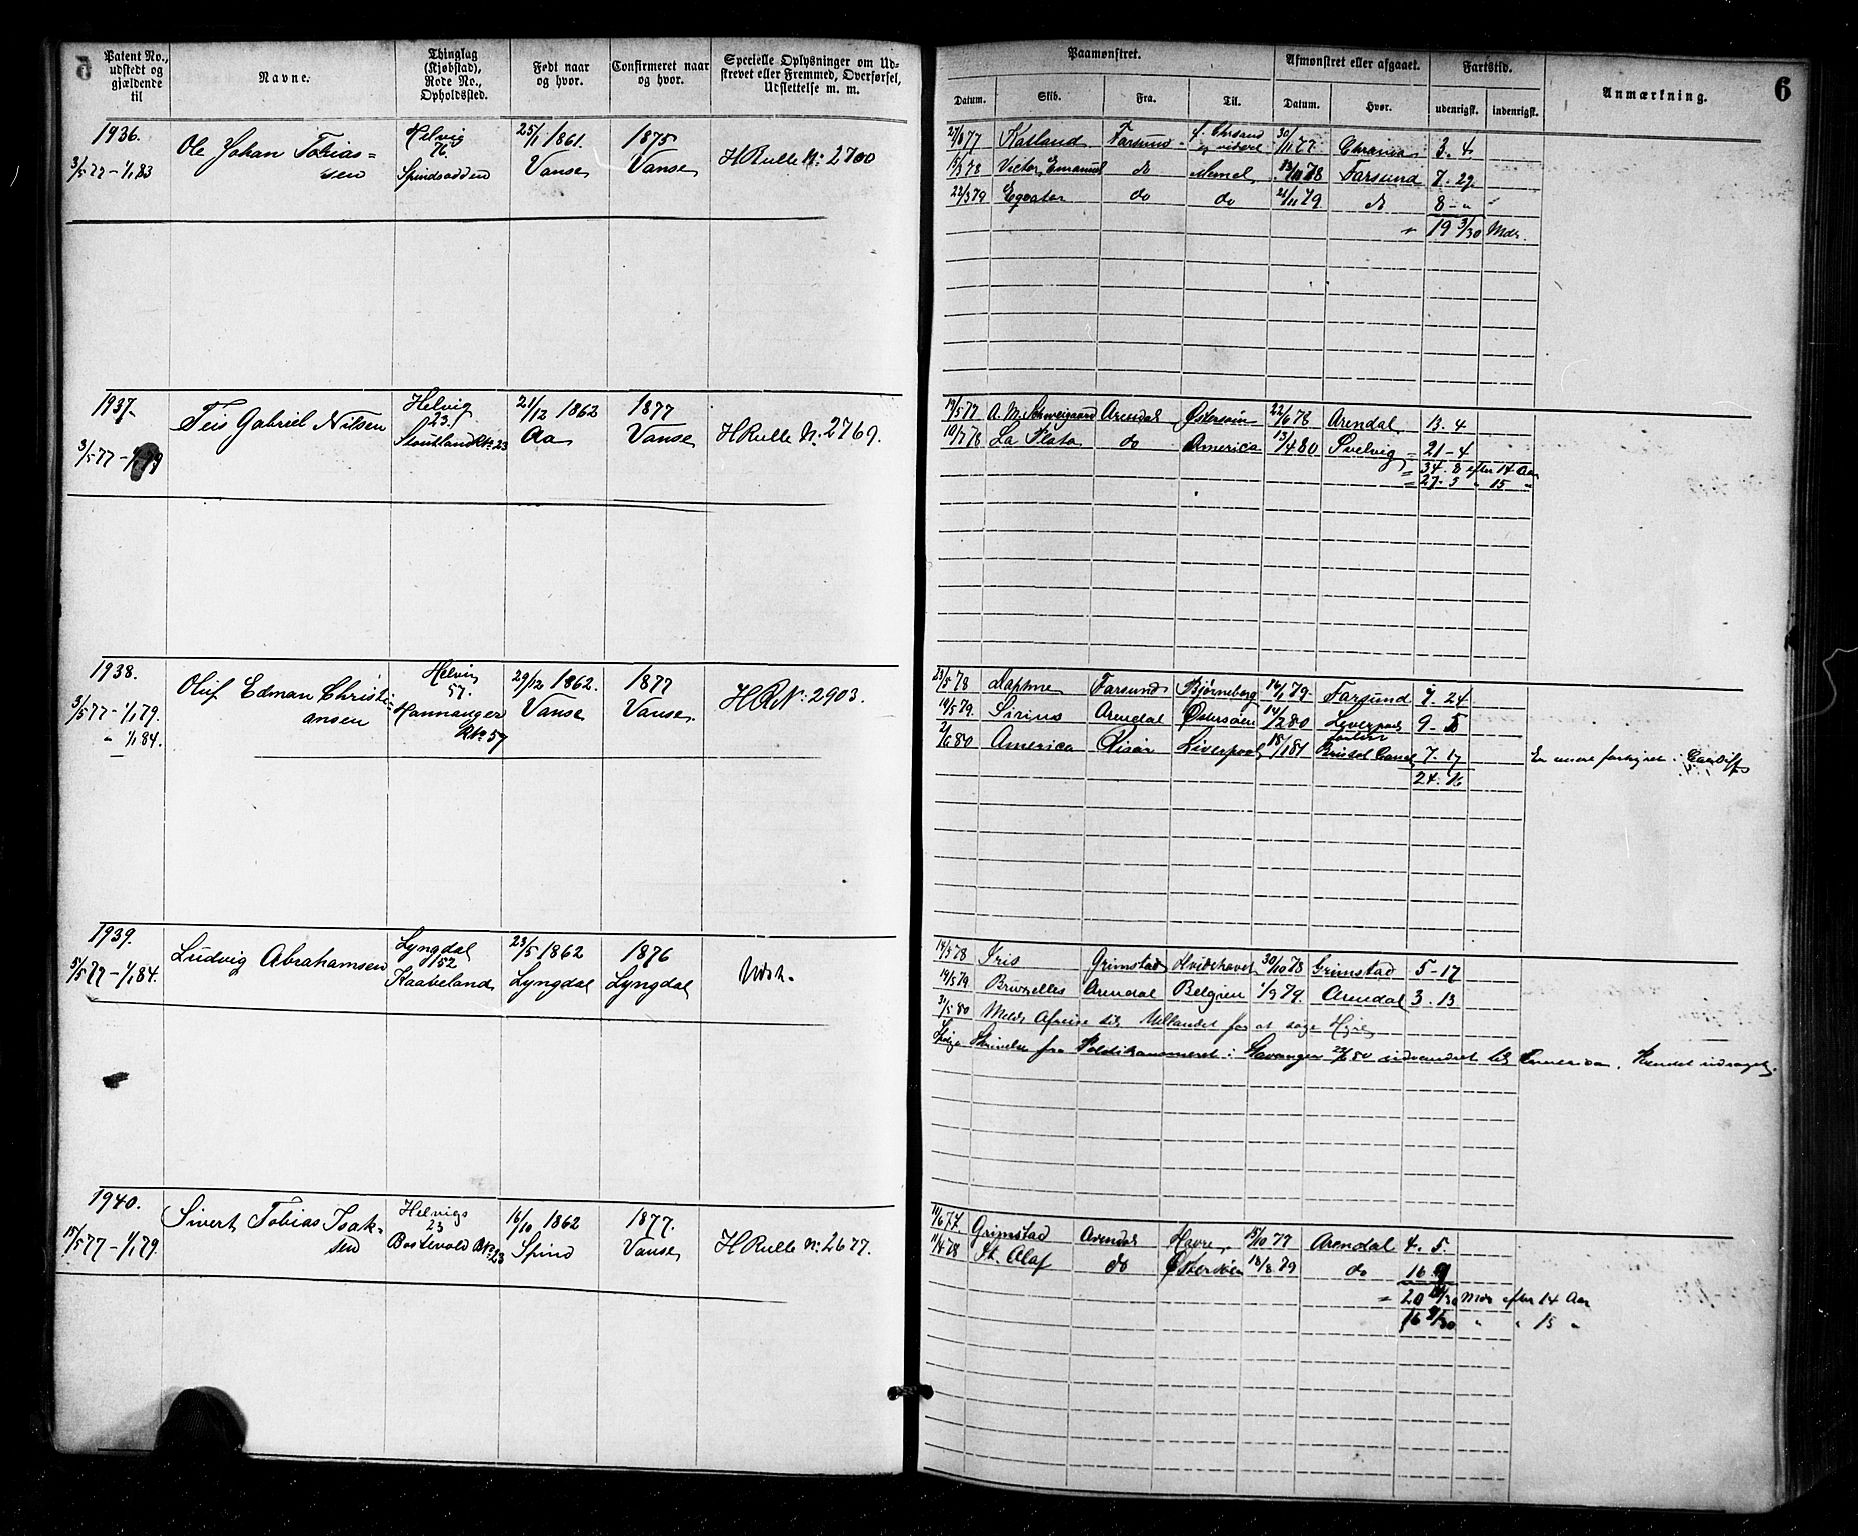 5
Patent No., udstedt og gjældende til
Navne.
Thinglag (Kjøbstad), Rode No., Opholdssted.
Født naar og hvor.
Confirmeret naar og hvor.
Specielle Oplysninger om Udskrevet eller Fremmed, Overførsel, Udslettelse m. m.
Paamønstret.
Afmønstret eller afgaaet.
Fartstid.
Anmærkning.
6
Datum. Skib. Fra. Til. Datum. Hvor. udenrigsk. indenrigsk.
1936.
3/5 77 - 1/1 83
Ole Johan Tobias=
sen
Helvig
76.
Spindsodden
25/1 1861.
Vanse
1875
Vanse
HRulle No: 2700
77 Katland Farsund 30/11 77 Chrania 3. 4
78 Victor Emanuel do Memel 78 Farsund 7. 29
22/3 79 Eqvator do do 21/11 79 do 8 - "
" 19 3/30 Mdr.
1937.
3/5 77 - 1/1 79
Teis Gabriel Nilsen
Helvig
23.
21/12 1862
Aa
1877
Vanse
HRulle No. 2767.
19/5 77 A. M. Schweigaard Arendal Østersøen 22/6 78 Arendal 13. 4
19/7 78 La Plata do America 13/4 80 Svelvig 21 - 4
= 34. 8 efter 14 Aar
= 27. 3 " 15 "
1938.
3/5 77 - 1/1 79.
" 1/1 84.
Oluf Edman Christi-
ansen
Helvig
57.
Hannanger
R No 57
29/12 1862.
Vanse
1877
Vanse.
HRN: 2903.
23/5 78 Daphne Farsund Bjørneborg 16/1 79 Farsund 7. 24
19/5 79. Sirius Arendal Østersøen 14/2 80 Liverpool 9 - 5
2/6 80 America Risør Liverpool 18/1 81 Bristol Canal 7. 17
24. 16
Cardiff
1939.
5/5 77 - 1/1 84.
Ludvig Abrahamsen
Lyngdal
152
Kaabeland
23/5 1862
Lyngdal
1876
Lyngdal
Udsk.
14/5 78 Iris Grimstad Hvidehavet 30/10 78 Grimstad 5 - 17
19/5 79 Bruxelles Arendal Belgien 1/9 79. Arendal 3. 13
31/5 80 Meldt Afreise til Udlandet for at søge Hyre
Ifølge Skrivelse fra Politikammeret i Stavanger 80 udvandret til America.
1940.
15/5 77 - 1/1 79.
Sivert Tobias Isak-
sen
Helvigs
23
Bostevold R No 23
16/10 1862
Spind
1877.
Vanse
HRulle No: 2677.
11/6 77 Grimstad Arendal Havre 15/10 77 Arendal 4. 5.
11/4 78 St. Olaf do Østersøen 18/8 79 do 16 9
= 20 /30 Mdr efter 14 Aar
16 9/30 " " 15 "